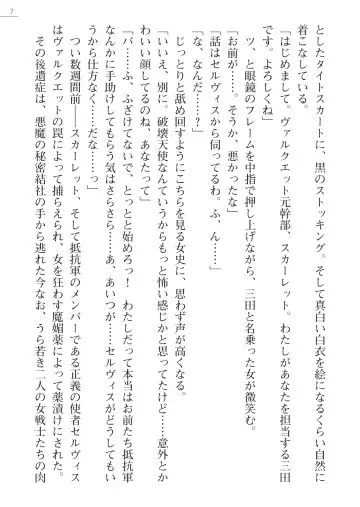 7
としたタイトスカートに、黒のストッキング。そして真白い白衣を絵になるくらい自然に
着こなしている。
「はじめまして。ヴァルクエット元幹部、スカーレット。わたしがあなたを担当する三田
です。よろしくね」
ツ、と眼鏡のフレームを中指で押し上げながら、三田と名乗った女が微笑む。
「お前が……。そうか、悪かったな」
「話はセルヴィスから伺ってるわ。ふ、ん……」
「な、なんだ……？」
じっとりと舐め回すようにこちらを見る女史に、思わず声が高くなる。
「いいえ、別に。破壊天使なんていうからもっと怖い感じかと思ってたけど……意外とか
わいい顔してるのね、あなたって」
「バ……ふ、ふざけてないで、とっとと始めろっ！　わたしだって本当はお前たち抵抗軍
なんかに手助けしてもらう気はさらさら……あ、あいつが……セルヴィスがどうしてもい
うから仕方なく……だな……っ」
つい数週間前――スカーレット、そして抵抗軍のメンバーである正義の使者セルヴィス
はヴァルクエットの罠によって捕らえられ、女を狂わす魔媚薬によって薬漬けにされた。
その後遺症は、悪魔の秘密結社の手から逃れた今なお、うら若き二人の女戦士たちの肉